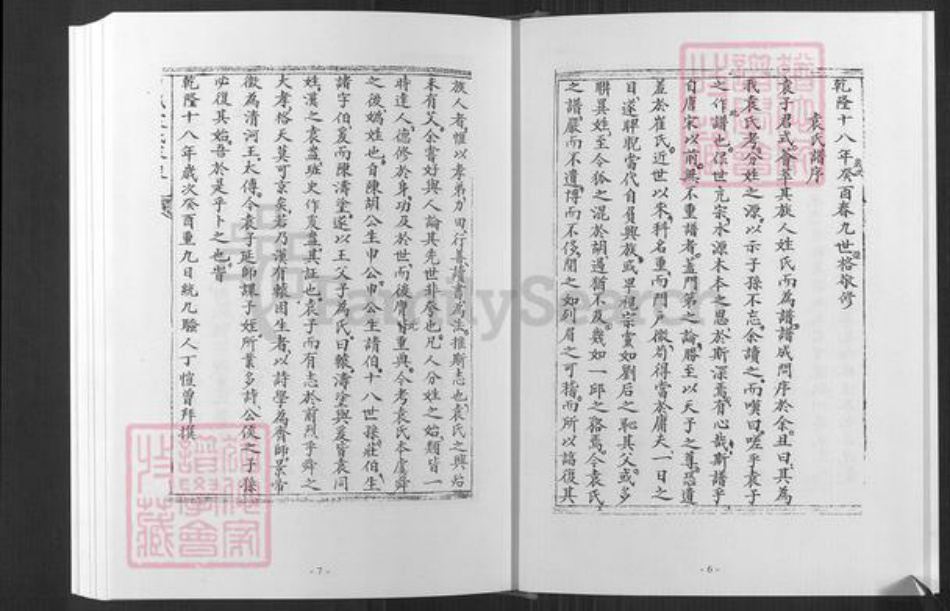 乾隆十八年癸酉春九世 格敬修
袁氏譜序
袁子君式薈萃其族人姓氏而為譜譜成問序於余且曰其為
我袁氏考分姓之源以示子孫不忘余讀之而嘆曰嗟乎袁子
之作譜也保世亢宗水源木本之思於斯深焉有心哉斯譜乎
自唐宋以前無不重譜者蓋門第之論勝至以天子之尊恐遺
蓋於崔氏近世以來科名重而門戶微苟得當於庸夫一日之
目遂睥睨當代自負興族或卑視宗黨如劉后之恥其父或多
聯異姓至今狐之混於胡適猶不及幾如一邱之貉焉今袁氏
之譜嚴而不遺博而不侈閱之如列眉之可稽而所以諮復其
- 6 -
族人者惟以孝弟力田行善讀書為法推斯志也袁氏之興殆
未有艾余嘗好與人論其先世非夸也凡人分姓之始類皆一
時達人德修於身功及於世而後膺 重典今考袁氏本虞舜
之後媯姓也自陳胡公生申公申公生請伯十八世孫莊伯生
諸字伯爰而陳濤塗遂以王父字為氏曰轅濤塗與爰皆袁同
姓漢之袁盎班史作爰盎其証也袁子而有志於前烈乎舜之
大孝格天莫可京矣若乃漢有轅固生者以詩學為齊師景帝
徵為清河王太傅今袁子延師課子姪所業多詩公侯之子孫
必復其始吾於是乎卜之也皆
乾隆十八年歲次癸酉重九日統九驗人丁愷曾拜撰
- 7 -
FamilySearch